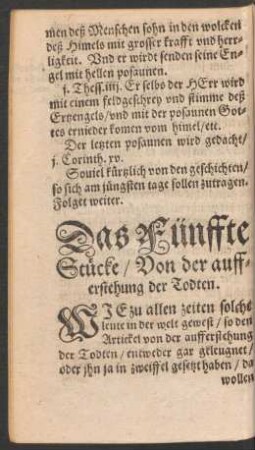 men deß Menschen sohn in den wolcken
deß Himels mit grosser krafft vnd herr-
ligkeit. Vnd er wirdt senden seine En-
gel mit hellen posaunen.
j. Thess. iiij. Er selbs der HErr wird
mit einem feldgeschrey vnd stimme deß
Ertzengels/ vnd mit der posaunen Got-
tes ernieder komen vom himel/ etc.
Der letzten posaunen wird gedacht/
j. Corinth. xv.
Souiel kürtzlich von den geschichten/
so sich am jüngsten tage sollen zutragen.
Folget weiter.
Das Fünffte
Stücke/ Von der auff-
erstehung der Todten.
WJE zu allen zeiten solche
leute in der welt gewest/ so den
Artickel von der aufferstehung
der Todten/ entweder gar geleugnet/
oder jhn ja in zweiffel gesetzt haben/ da
wollen